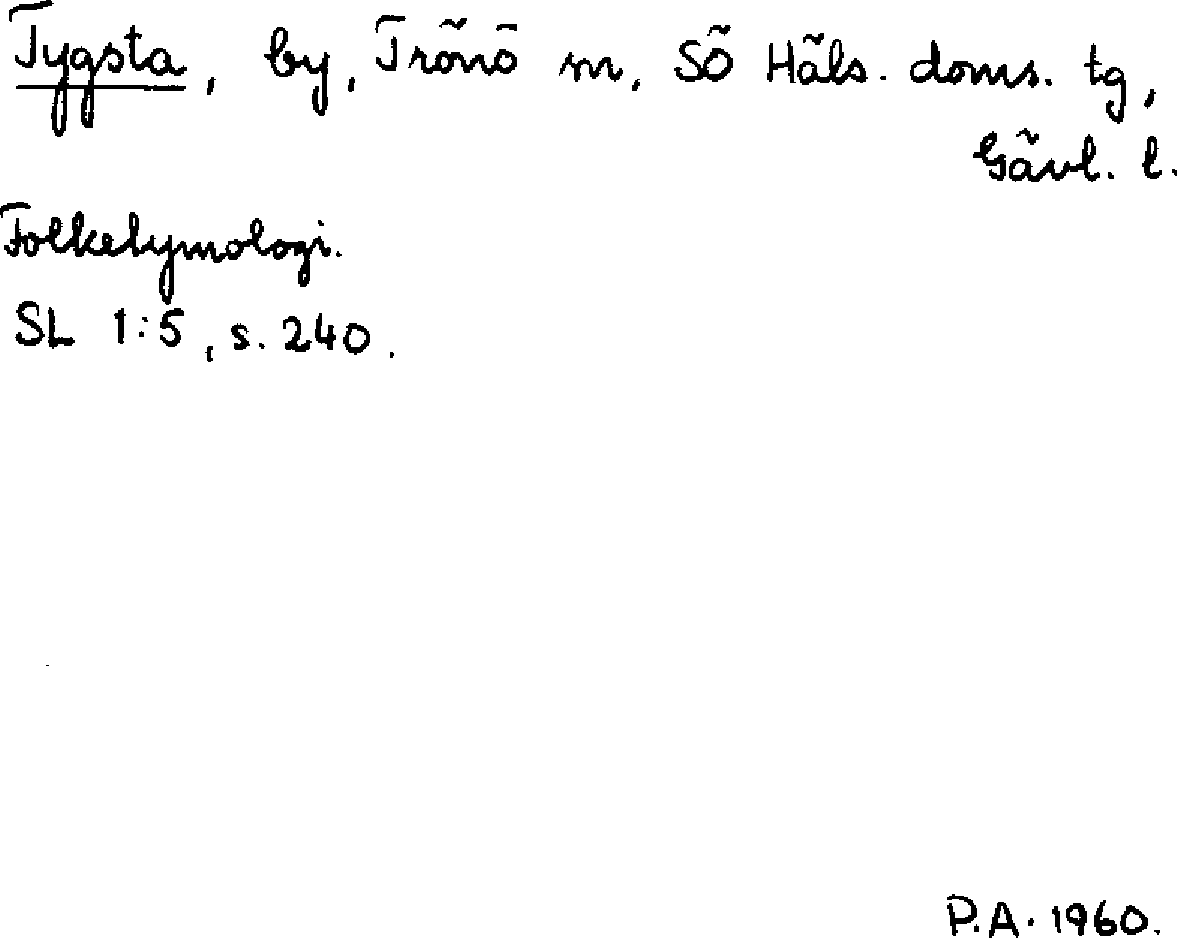 Tygsta, by, Trönö sn, Sö Häls. doms. tg,
Gävl. l.
Folketymologi.
SL 1:5, s. 240.
P.A. 1960.